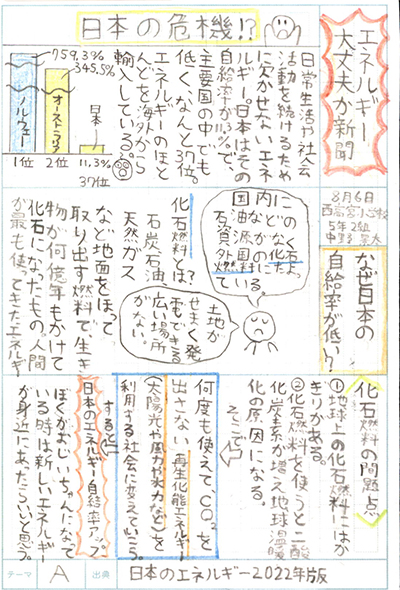 エネルギー
大丈夫か新聞
日本の危機!?
日常生活や社会
活動を続けるため
に欠かせないエネ
ルギー。日本はその
自給率が11.3%で、
主要国の中でも
低く、なんと37位。
エネルギーのほと
んどを海外から
輸入している。
759.3%
345.5%
ノルウェー
オーストラリア
日本
1位
2位
11.3%
37位
8月6日
5年2組
なぜ日本の
自給率が低い!?
国内に
石油などの
資源がなく
外国の化石
燃料に
よっている
土地が
せまく発
電できる
広い場所
がない。
化石燃料とは?
石炭石油
天然ガス
など地面をほって
取り出す燃料で、生き
物が何億年もかけて
化石になったもの。人間
が最も使ってきたエネルギー
化石燃料の問題点
①地球上の化石燃料にはか
ぎりがある。
②化石燃料を使うと二酸
化炭素が増え地球温暖
化の原因になる。
そこで
何度も使えて、CO2を
出さない再生可能エネルギー
(太陽光や風力や水力など)を
利用する社会に変えていこう。
すると
日本のエネルギー自給率アップ
ぼくがおじいちゃんになって
いる時は新しいエネルギー
が身近にあったらいいと思う。
テーマ
A
出典
日本のエネルギー2022年版